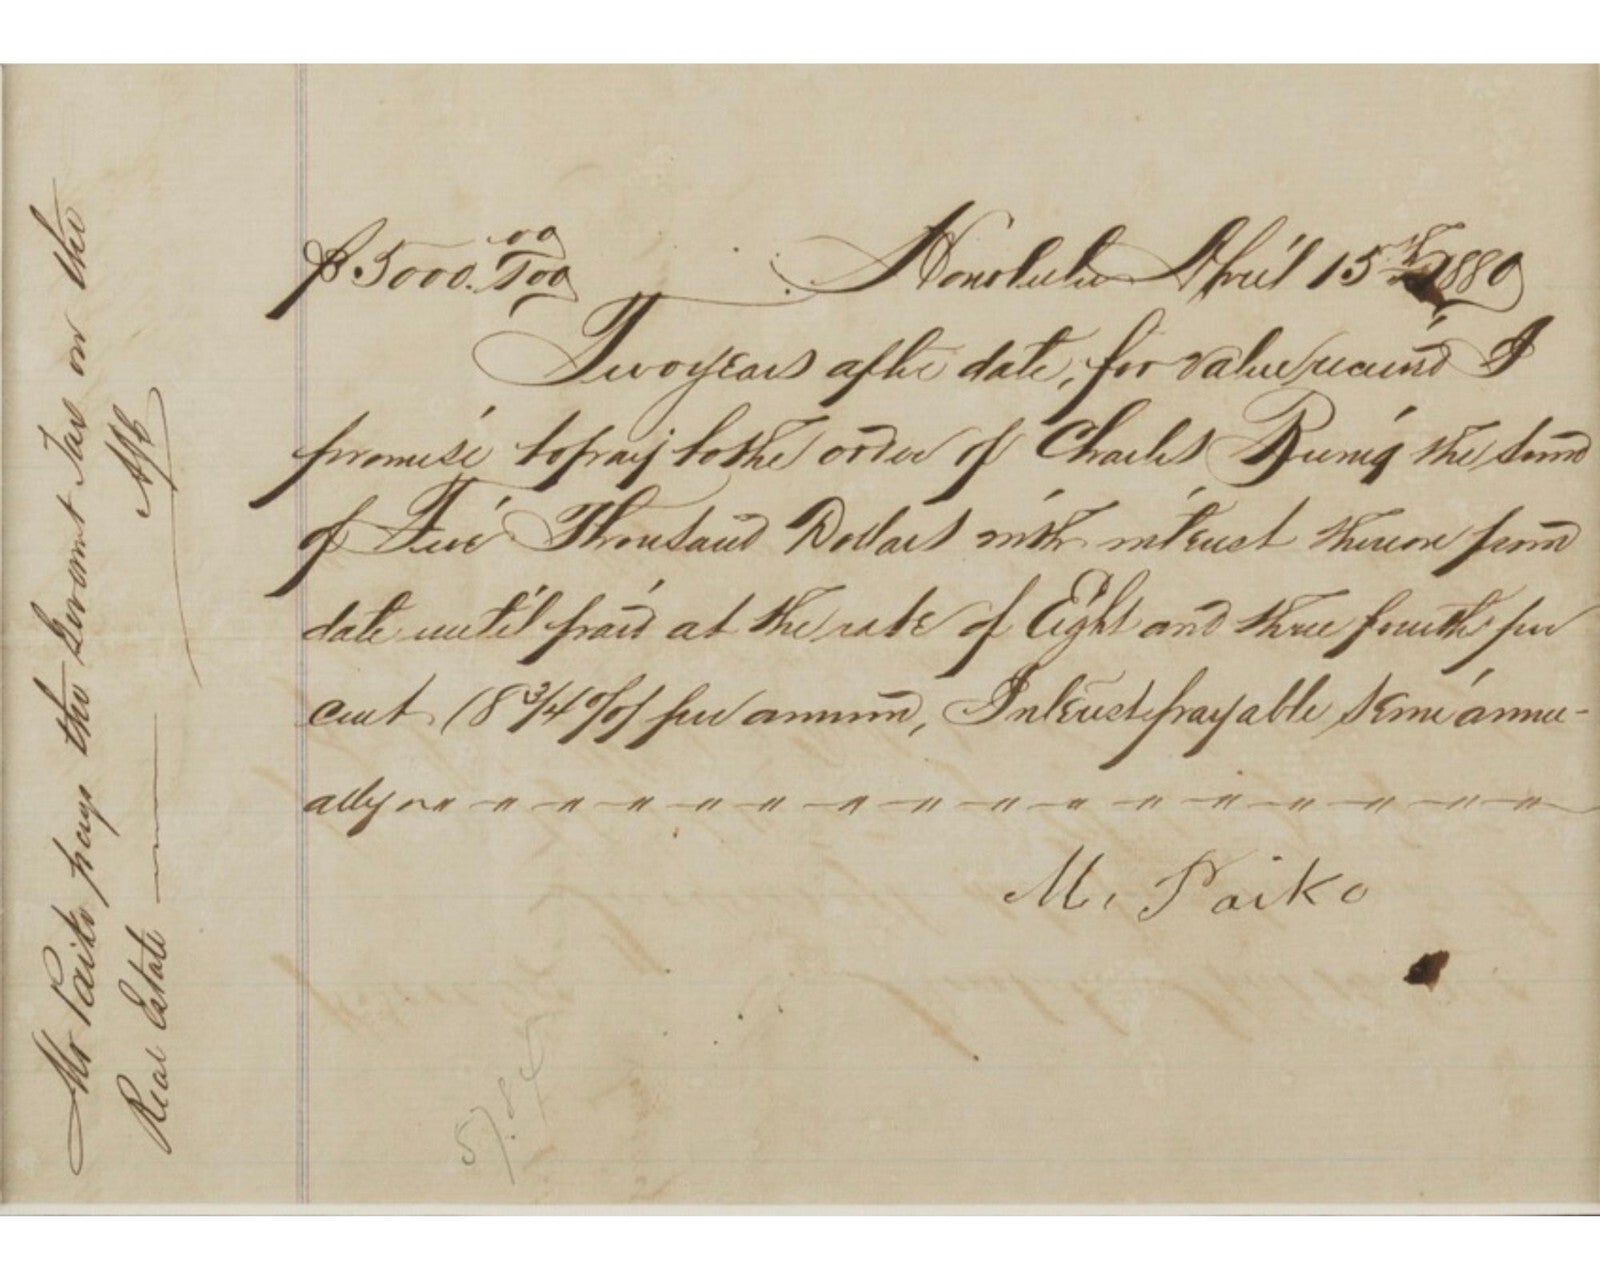 $5000. 00/100 Honolulu April 15th 1880
Two years after date, for value received I
promise to pay to the order of Charles the sum
of Five Thousand Dollars with interest thereon from
date until paid at the rate of Eight and three fourths per
cent (8 3/4 %) per annum, Interest payable semi annu-
ally
M. Paiko
Mr Paiko pays the Government Tax on the
Real Estate
57.84